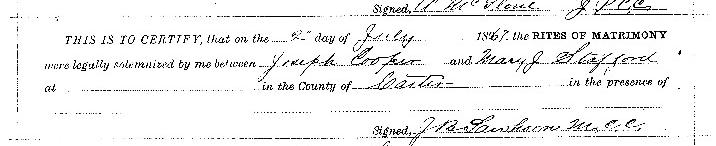 Signed, W McStone J.P.C.C.
THIS IS TO CERTIFY, that on the 2" day of July 1861. the RITES OF MATRIMONY
were legally solemnized by me between Joseph Cooper and Mary J Stafford
at in the County of Carter in the presence of
Signed, J B M.C.C.